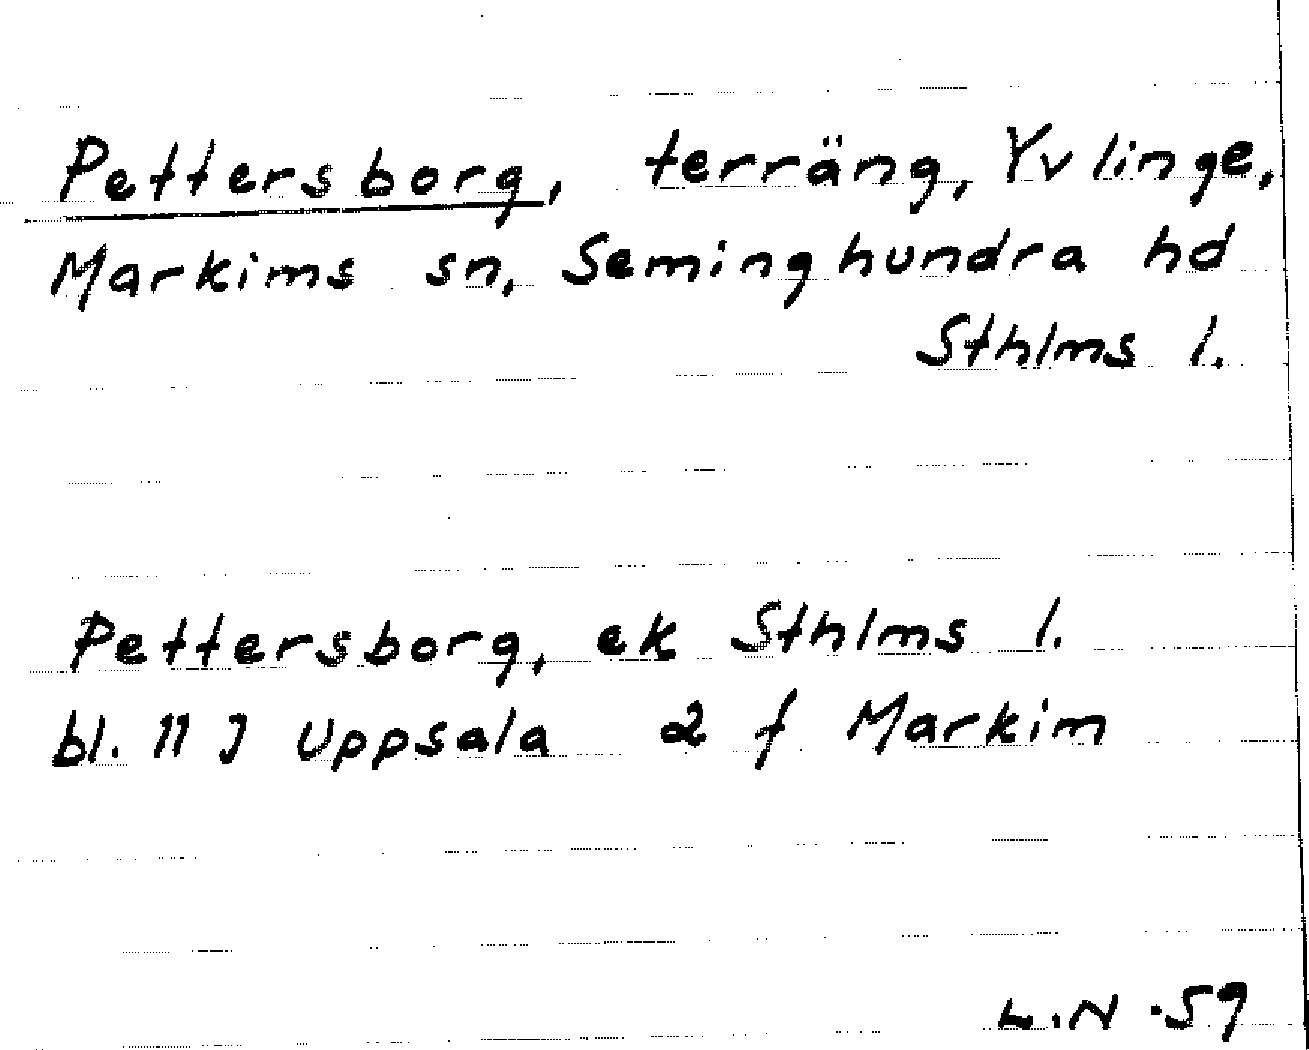 Pettersborg, terräng, Yvlinge,
Markims sn, Seminghundra hd
Sthlms l.
Pettersborg, ek Sthlms l.
bl. 11 J Uppsala 2 f Markim
L.N. -59